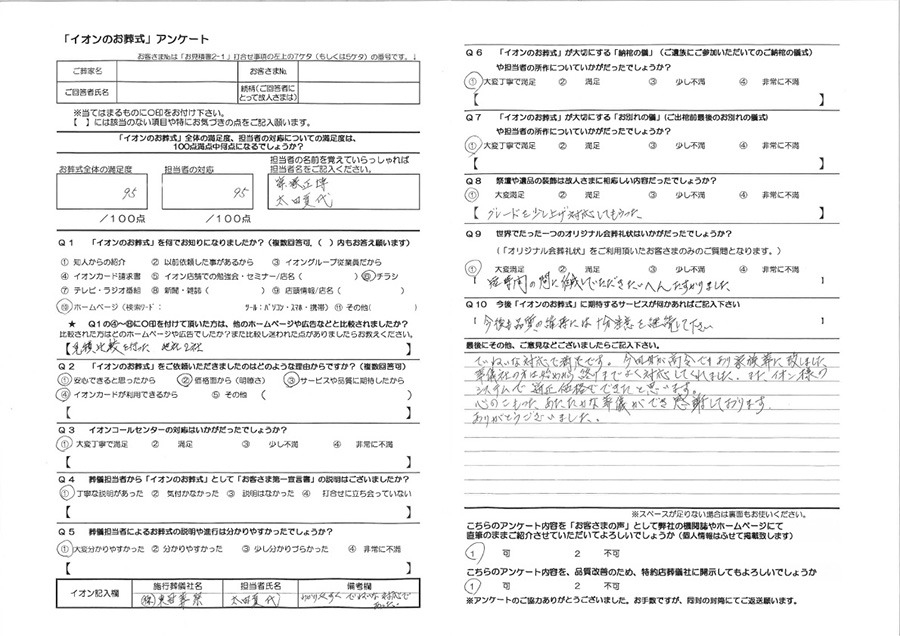 「イオンのお葬式」アンケート
お客さまNo.は「お見積書2-1」打合せ事項の左上の7ケタ（もしくは5ケタ）の番号です。↓
ご葬家名 お客さまNo.
ご回答者氏名 続柄（ご回答者にとって故人さまは）
※当てはまるものに○印をお付け下さい。
【 】には該当のない項目や特にお気づきの点をご記入願います。
「イオンのお葬式」全体の満足度、担当者の対応についての満足度は、
100点満点中何点になるでしょうか？
お葬式全体の満足度 担当者の対応 担当者の名前を覚えていらっしゃれば
担当者名をご記入ください。
95 95
太田夏代
／100点 ／100点
Q1 「イオンのお葬式」を何でお知りになりましたか？（複数回答可、（ ）内もお答え願います）
① 知人からの紹介 ② 以前依頼した事があるから ③ イオングループ従業員だから
④ イオンカード請求書 ⑤ イオン店舗での勉強会・セミナー/店名（ ） ⑥ チラシ
⑦ テレビ・ラジオ番組 ⑧ 新聞・雑誌（ ） ⑨ 店頭情報/店名（ ）
⑩ ホームページ（検索ワード： ツール：パソコン・スマホ・携帯） ⑪ その他（ ）
★ Q1の④～⑪に○印を付けて頂いた方は、他のホームページや広告などと比較されましたか？
比較された方はどのホームページや広告でしたか？また比較し迷われた点がありましたらお教えください。
【見積比較を行った 他社2社】
Q2 「イオンのお葬式」をご依頼いただきましたのはどのような理由からですか？（複数回答可）
① 安心できると思ったから ② 価格面から（明瞭さ） ③ サービスや品質に期待したから
④ イオンカードが利用できるから ⑤ その他 （ ）
【 】
Q3 イオンコールセンターの対応はいかがだったでしょうか？
① 大変丁寧で満足 ② 満足 ③ 少し不満 ④ 非常に不満
【 】
Q4 葬儀担当者から「イオンのお葬式」として「お客さま第一宣言書」の説明はございましたか？
① 丁寧な説明があった ② 気付かなかった ③ 説明はなかった ④ 打合せに立ち会っていない
【 】
Q5 葬儀担当者によるお葬式の説明や進行は分かりやすかったでしょうか？
① 大変分かりやすかった ② 分かりやすかった ③ 少し分かりづらかった ④ 非常に不満
【 】
イオン記入欄 施行葬儀社名 担当者氏名 備考欄
㈱東冠葬祭 太田夏代 わかりやすく ていねいな対応で
あった。
Q6 「イオンのお葬式」が大切にする「納棺の儀」（ご遺族にご参加いただいてのご納棺の儀式）
や担当者の所作についていかがだったでしょうか？
① 大変丁寧で満足 ② 満足 ③ 少し不満 ④ 非常に不満
【 】
Q7 「イオンのお葬式」が大切にする「お別れの儀」（ご出棺前最後のお別れの儀式）
や担当者の所作についていかがだったでしょうか？
① 大変丁寧で満足 ② 満足 ③ 少し不満 ④ 非常に不満
【 】
Q8 祭壇や遺品の装飾は故人さまに相応しい内容だったでしょうか？
① 大変満足 ② 満足 ③ 少し不満 ④ 非常に不満
【グレードを少し上げ対応してもらった。】
Q9 世界でたった一つのオリジナル会葬礼状はいかがだったでしょうか？
（「オリジナル会葬礼状」をご利用頂いたお客さまのみのご質問となります。）
① 大変満足 ② 満足 ③ 少し不満 ④ 非常に不満
【短時間の間に していただき大へんたすかりました】
Q10 今後「イオンのお葬式」に期待するサービスが何かあればご記入下さい
【今後も品質の には十分注意を 下さい】
最後にその他、ご意見などございましたらご記入下さい。
ていねいな対応で満足です。今回母が高令でもあり家族葬に致しました
葬儀社の方は始めから終了までよく対応してくれました。また、イオン様の
システムで適正価格でできたと思います。
心のこもった、あたたかな葬儀ができ感謝しております。
ありがとうございました。
※スペースが足りない場合は裏面もお使いください。
こちらのアンケート内容を「お客さまの声」として弊社の機関誌やホームページにて
直筆のままご紹介させていただいてよろしいでしょうか（個人情報はふせて掲載致します）
1 可 2 不可
こちらのアンケート内容を、品質改善のため、特約店葬儀社に開示してもよろしいでしょうか
1 可 2 不可
※アンケートのご協力ありがとうございました。お手数ですが、同封の封筒にてご返送願います。